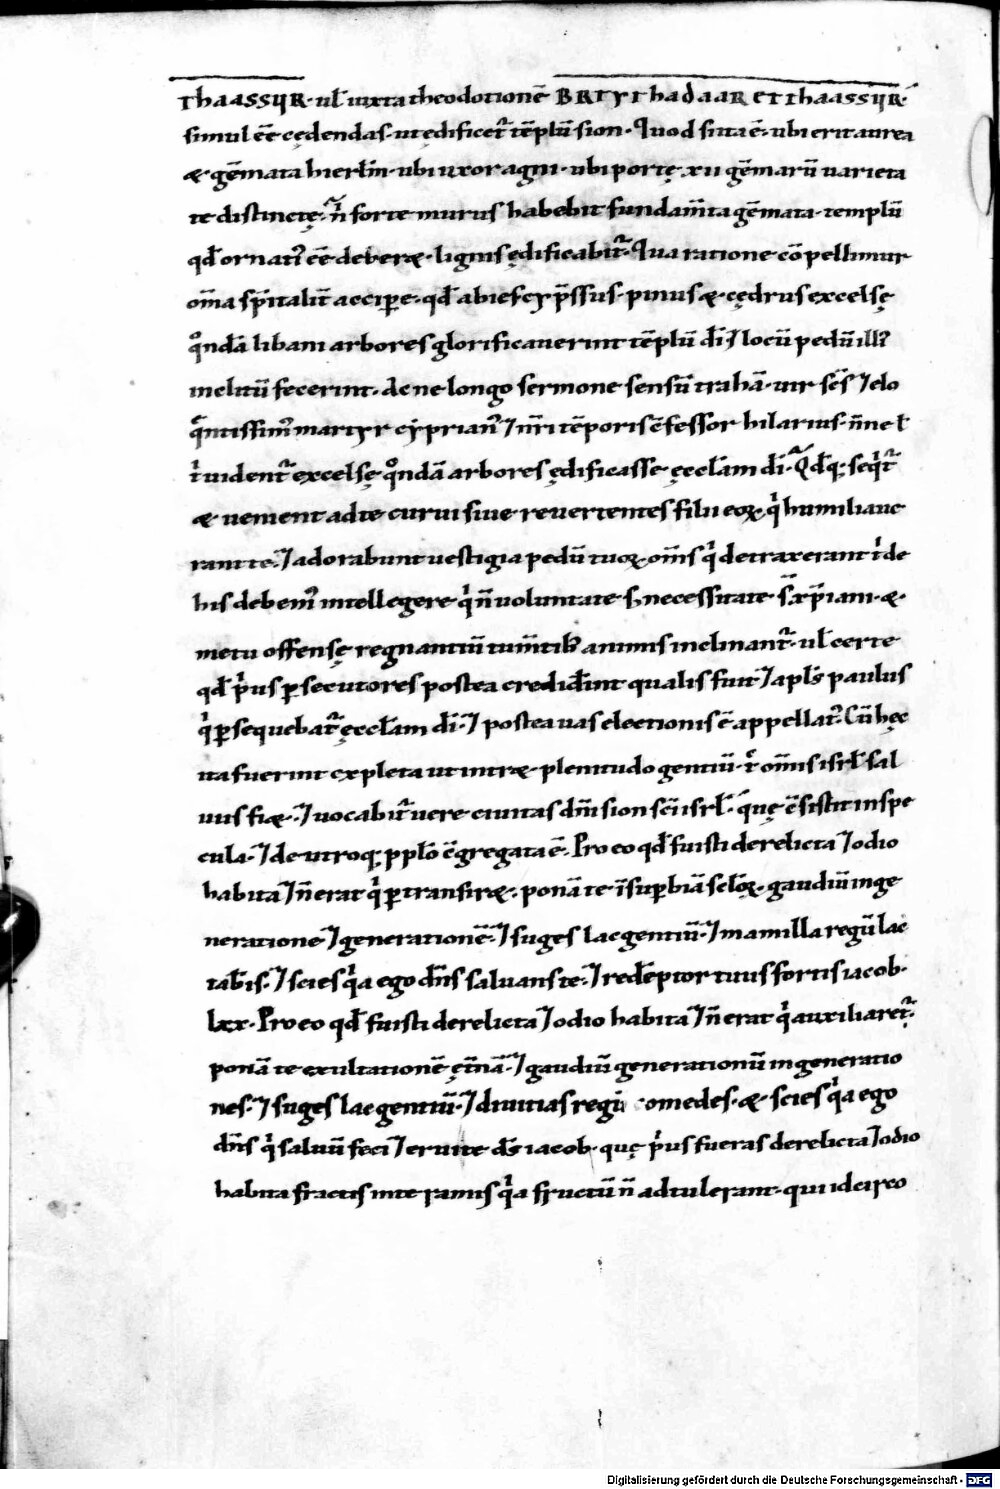 thaassur· ul̄ iuxta theodotionē brtyt hadaar et thaassur·
simul eē cędendas· ut ędificet᷑ tēplū sion· Quod si ita ē· ubi erit aurea
& gēmata hierl̄m· ubi uxor agni· ubi portę xii gēmarū uarieta
te distinctę· n̄ forte murus habebit fundam̄ta gēmata· templū
qđ ornati᷒ eē deber&· lignis ędificabit᷑· Qua ratione cōpellimur
om̄a spitalit̄ accipe· qđ abies cypssus· pinus & cędrus excelsę
qͦndā libani arbores glorificauerint tēplū dī ⁊ locū pedū illi᷒
inclitū fecerint· Ac ne longo sermone sensū trahā· uir scs̄ ⁊ elo
qͣntissim᷒ martyr cyprian᷒ ⁊ nr̄i tēporis c̄fessor hilarius· n̄ne t̄
t' uident᷑ excelsę qͦndā arbores ędificasse ęccl̄am dī· Qđq; seqͥt᷑
& uenient ad te curui siue reuertentes filii eoꝝ qͥ humiliaue
rant te· ⁊ adorabunt uestigia pedū tuoꝝ om̄s qͥ detraxerant t' de
his debem᷒ intellegere qͥ n̄ uoluntate s; necessitate s̄ xp̄iani· &
metu offensę regnantiū tum̄tib; animis inclinant᷑· ul̄ certe
qđ pͥus ꝑsecutores postea credider̄int qualis fuit ⁊ apl̄s paulus
qͥ ꝑsequebat᷑ ęccl̄am dī· ⁊ postea uas electionis ē appellat᷒· Cū hęc
ita fuerint expleta ut intr& plenitudo gentiū· t̄ om̄is isrl̄ sal
uus fi&· ⁊ uocabit᷑ uere ciuitas dn̄i sion scī isrl̄· quę c̄sistit in spe
cula· ⁊ de utroq; pplo c̄gregata ē· Pro eo qđ fuisti derelicta ⁊ odio
habita ⁊ n̄ erat qͥ ꝑtransir&· ponā te ī suꝑbiā sclo̅ꝝ· gaudiū in ge
neratione ⁊ generationē· ⁊ suges lac gentiū· ⁊ mamilla regū lac
tab̄is· ⁊ scies qͥa ego dn̄s saluans te· ⁊ redēptor tuus fortis iacob·
lxx· Pro eo qđ fuisti derelicta ⁊ odio habita ⁊ n̄ erat qͥ auxiliaret᷑·
ponā te exultationē ęt̄nā· ⁊ gaudiū generationū in generatio
nes· ⁊ suges lac gentiū· ⁊ diuitias regū comedes· & scies qͥa ego
dn̄s qͥ saluū feci ⁊ erui te d̄s iacob· quę pͥus fueras derelicta ⁊ odio
habita fractis in te ramis qͥa fructū n̄ adtulerant· qui idcirco
Digitalisierung gefördert durch die Deutsche Forschungsgemeinschaft - DFG